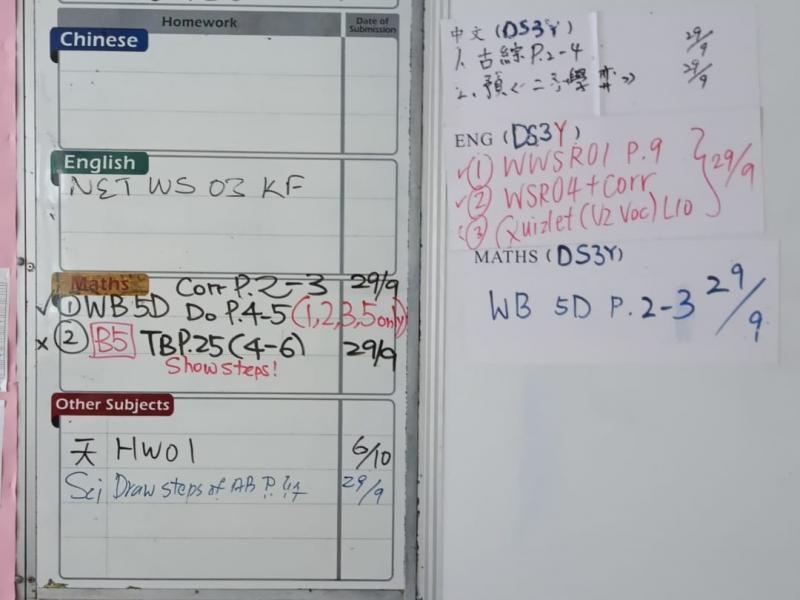 Homework
Date of Submission
Chinese
English
NET WS 03 KF
Maths
Corr P.2-3 29/9
✓ ① WB 5D Do P.4-5 (1,2,3,5 only)
x ② B5 TB P.25 (4-6) 29/9
Show steps!
Other Subjects
天 HW01 6/10
Sci Draw steps of AB P. 29/9
中文 (DS3Y)
1. 古綜 P.2-4 29/9
2. 預 29/9
ENG (DS3Y)
✓ ① WWSR01 P.9
✓ ② WSR04 + Corr 29/9
✓ ③ Quizlet (U2 Voc) L10
MATHS (DS3Y)
WB 5D P.2-3 29/9